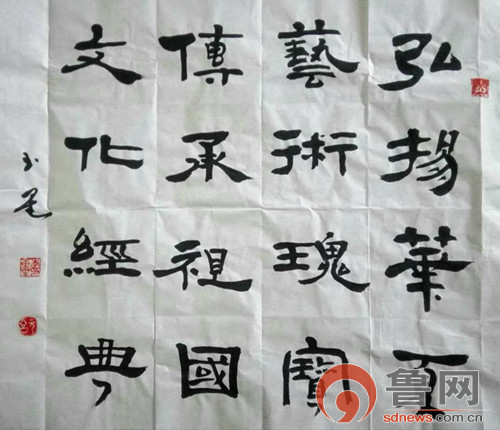 弘揚華夏
藝術瑰寶
傳承祖國
文化經典
鲁网
sdnews.com.cn